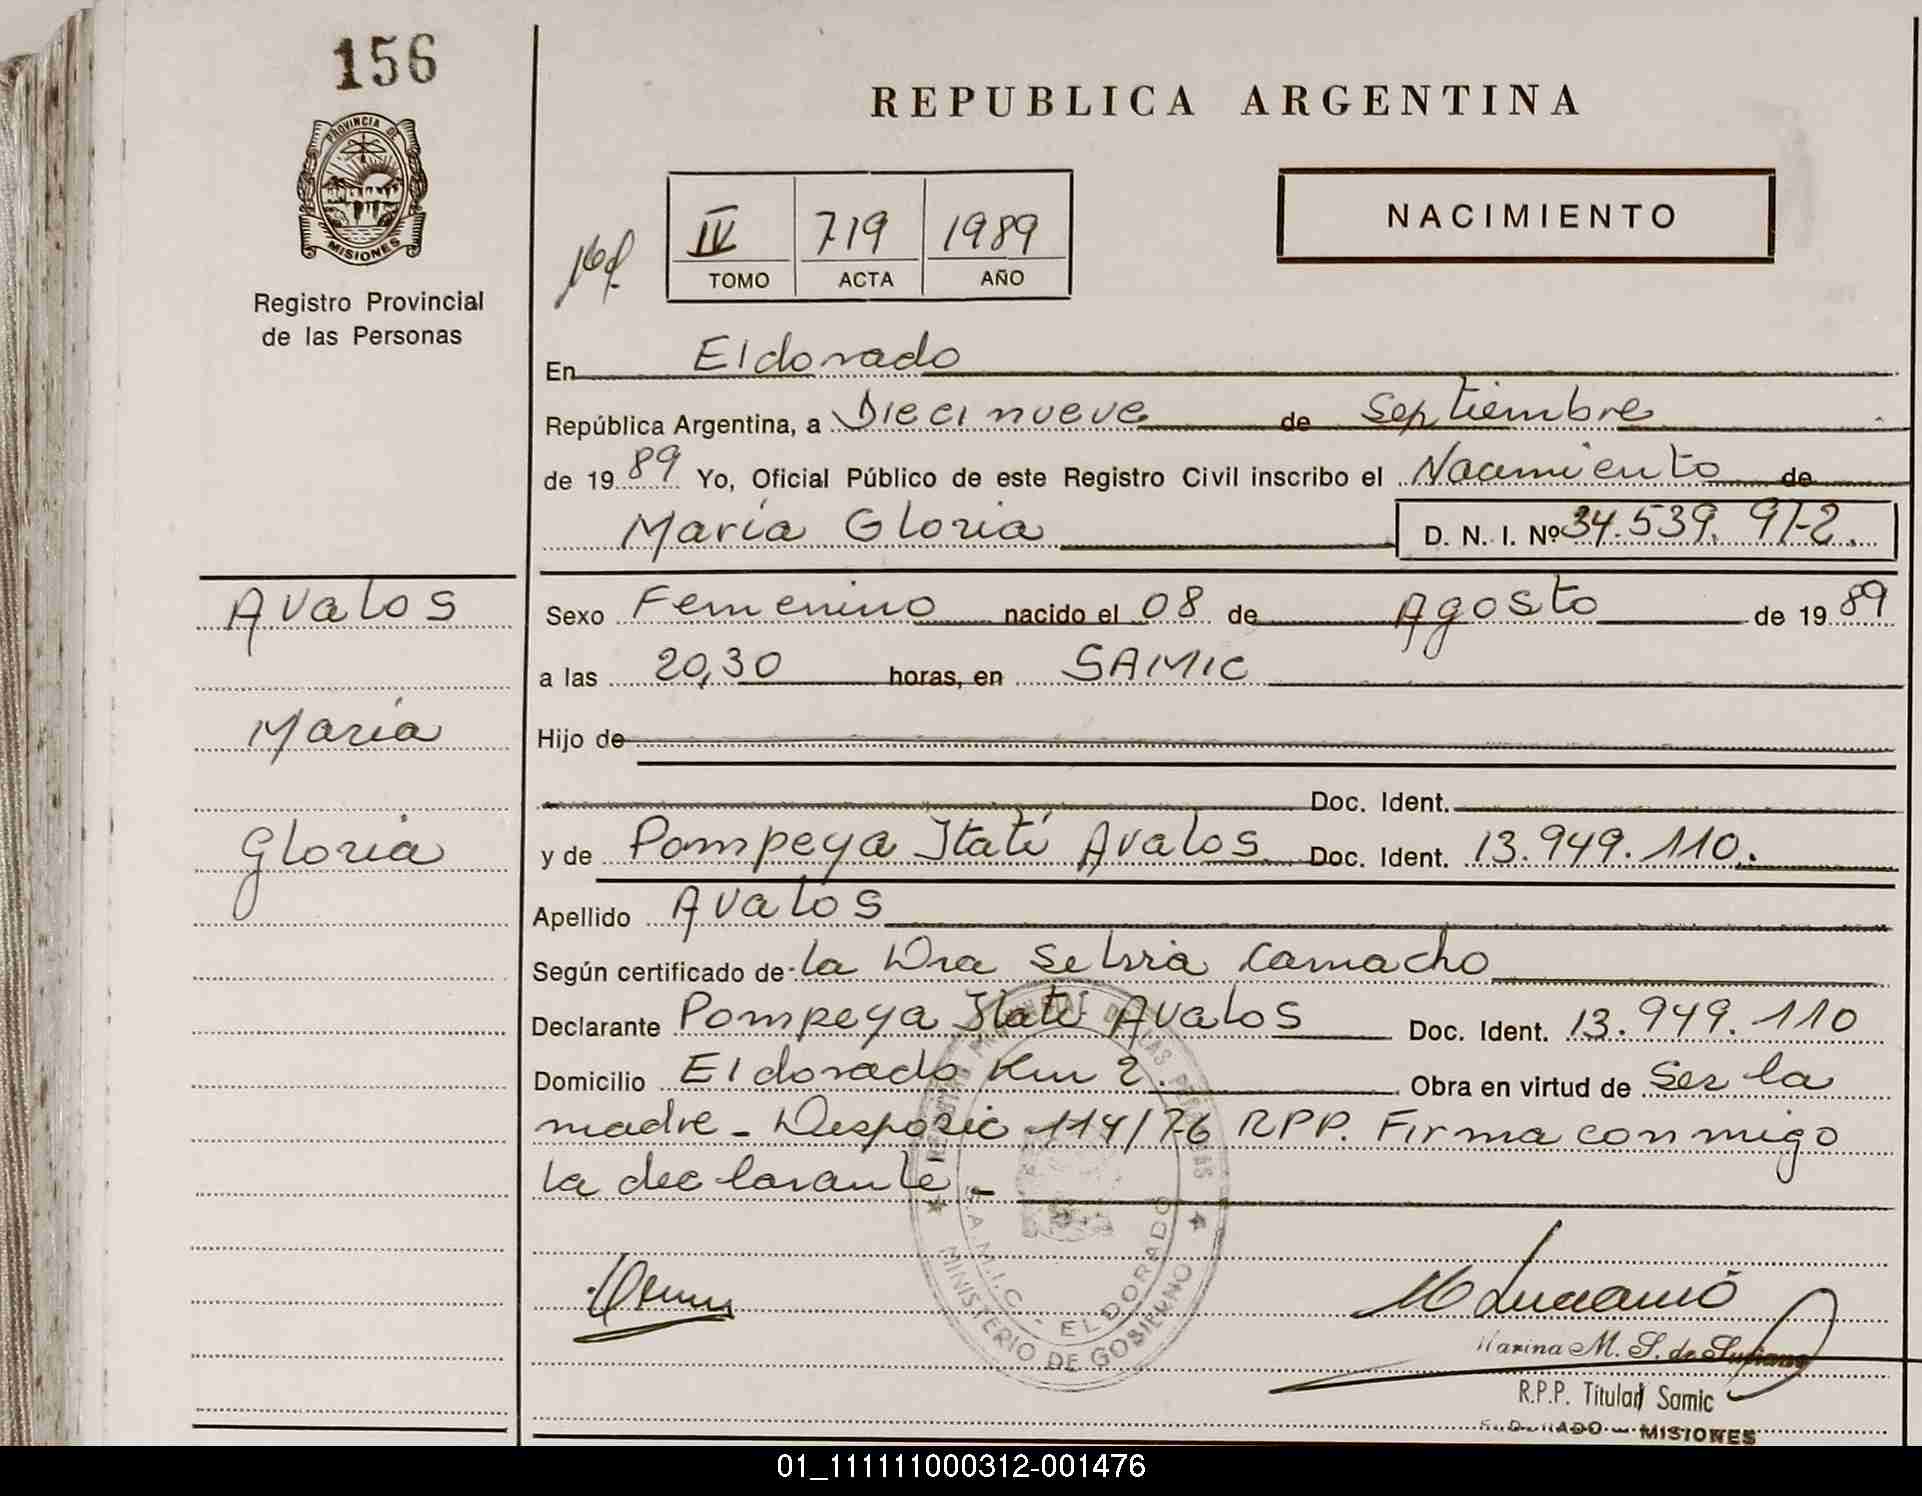 156
PROVINCIA DE
MISIONES
Registro Provincial
de las Personas
REPUBLICA ARGENTINA
IV 719 1989
TOMO ACTA AÑO
NACIMIENTO
En Eldorado
República Argentina, a Diecinueve de Septiembre
de 1989 Yo, Oficial Público de este Registro Civil inscribo el Nacimiento de
María Gloria D. N. I. Nº 34.539.
Avalos
María
Gloria
Sexo Femenino nacido el 08 de Agosto de 1989
a las 20,30 horas, en SAMIC
Hijo de
Doc. Ident.
y de Pompeya Itatí Avalos Doc. Ident. 13.949.110.
Apellido Avalos
Según certificado de la Dra Selvia Camacho
Declarante Pompeya Itatí Avalos Doc. Ident. 13.949.110
Domicilio Eldorado Km 2. Obra en virtud de Ser la
madre - Desposic 114/76 RPP. Firma conmigo
la declarante -
REGISTRO PROVINCIAL DE LAS PERSONAS
S.A.M.I.C. - ELDORADO
MINISTERIO DE GOBIERNO
Marina M. S. de
R.P.P. Titular Samic
ELDORADO - MISIONES
01_111111000312-001476